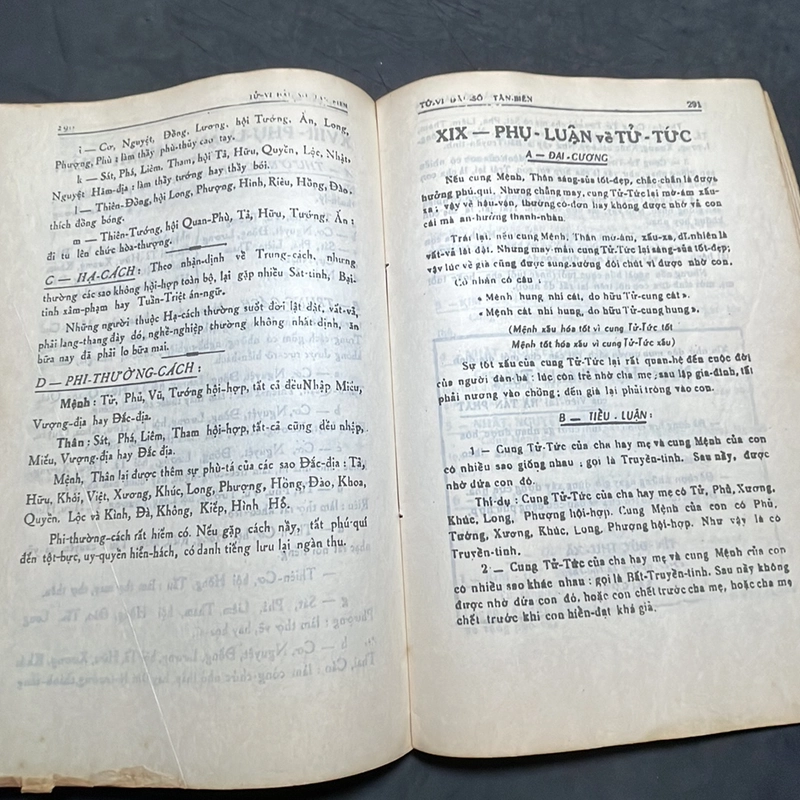 290
TỬ-VI ĐẨU SỐ TÂN BIÊN
i — Cơ, Nguyệt, Đồng, Lương, hội Tướng, Ấn, Long,
Phượng, Phù : làm thầy phù-thủy cao tay.
k — Sát, Phá, Liêm, Tham, hội Tả, Hữu, Quyền, Lộc, Nhật,
Nguyệt Hãm-địa : làm thầy tướng hay thầy bói.
l — Thiên-Đồng, hội Long, Phượng, Hình, Riêu, Hồng, Đào,
thích đồng bóng.
m — Thiên-Tướng, hội Quan-Phù, Tả, Hữu, Tướng, Ấn :
đi tu lên chức hòa-thượng.
C — HẠ-CÁCH : Theo nhận-định về Trung-cách, nhưng
thường các sao không hội-họp toàn bộ, lại gặp nhiều Sát-tinh, Bại-
tinh xâm-phạm hay Tuần-Triệt án-ngữ.
Những người thuộc Hạ-cách thường suốt đời lật đật, vất-vả,
phải lang-thang đây đó, nghề-nghiệp thường không nhất định, ăn
bữa nay đã phải lo bữa mai.
D — PHI-THƯỜNG-CÁCH :
Mệnh : Tử, Phủ, Vũ, Tướng hội-hợp, tất cả đều Nhập Miếu,
Vượng-địa hay Đắc-địa.
Thân : Sát, Phá, Liêm, Tham hội-hợp, tất-cả cũng đều nhập,
Miếu, Vượng-địa hay Đắc địa.
Mệnh, Thân lại được thêm sự phù-tá của các sao Đắc-địa : Tả,
Hữu, Khôi, Việt, Xương, Khúc, Long, Phượng, Hồng, Đào, Khoa,
Quyền. Lộc và Kình, Đà, Không, Kiếp, Hình Hổ.
Phi-thường-cách rất hiếm có. Nếu gặp cách nầy, tất phú-quí
đến tột-bực, uy-quyền hiển-hách, có danh tiếng lưu lại ngàn thu.
TỬ-VI ĐẨU SỐ TÂN-BIÊN
291
XIX — PHỤ-LUẬN về TỬ-TỨC
A — ĐẠI-CƯƠNG
Nếu cung Mệnh, Thân sáng-sủa tốt-đẹp, chắc-chắn là được
hưởng phú.quí. Nhưng chẳng may, cung Tử-Tức lại mờ-ám xấu-
xa ; vậy về hậu-vận, thường cô-đơn hay không được nhờ vả con
cái mà an-hưởng thanh-nhàn.
Trái lại, nếu cung Mệnh, Thân mờ-ám, xấu-xa, dĩ.nhiên là
vất-vả lật đật. Nhưng may-mắn cung Tử.Tức lại sáng-sủa tốt-đẹp;
vậy lúc về già cũng được sung.sướng đôi chút vì được nhờ con.
Cổ nhân có câu :
« Mệnh hung nhi cát, do hữu Tử-cung cát ».
« Mệnh cát nhi hung, do hữu Tử-cung hung ».
(Mệnh xấu hóa tốt vì cung Tử-Tức tốt
Mệnh tốt hóa xấu vì cung Tử-Tức xấu)
Sự tốt xấu của cung Tử-Tức lại rất quan-hệ đến cuộc đời
của người đàn-bà : lúc còn trẻ nhờ cha mẹ, sau lập gia-đình, tất
phải nương vào chồng ; đến già lại phải trông vào con.
B — TIỂU - LUẬN :
1 — Cung Tử-Tức của cha hay mẹ và cung Mệnh của con
có nhiều sao giống nhau : gọi là Truyền-tinh. Sau nầy, được
nhờ đứa con đó.
Thí-dụ : Cung Tử-Tức của cha hay mẹ có Tử, Phủ, Xương,
Khúc, Long, Phượng hội-hợp. Cung Mệnh của con có Phủ,
Tướng, Xương, Khúc, Long, Phượng hội-hợp. Như vậy là có
Truyền-tinh.
2 — Cung Tử-Tức của cha hay mẹ và cung Mệnh của con
có nhiều sao khác nhau : gọi là Bất-Truyền-tinh. Sau nầy không
được nhờ đứa con đó, hoặc con chết trước cha mẹ, hoặc cha mẹ
chết trước khi con hiển-đạt khá giả.